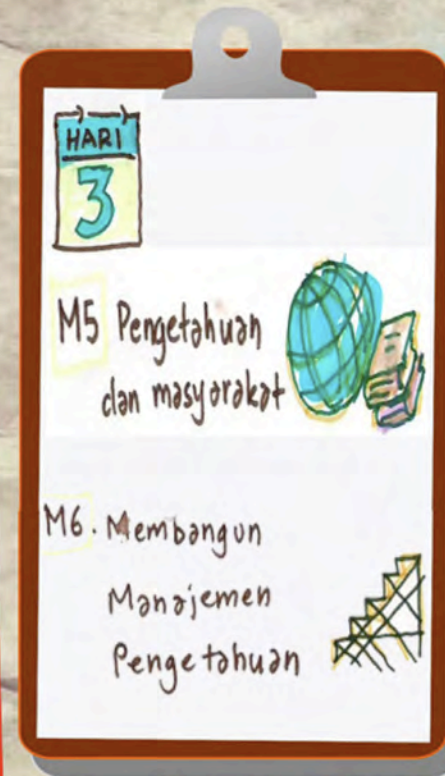 HARI
3
M5 Pengetahuan
dan masyarakat
M6. Membangun
Manajemen
Pengetahuan